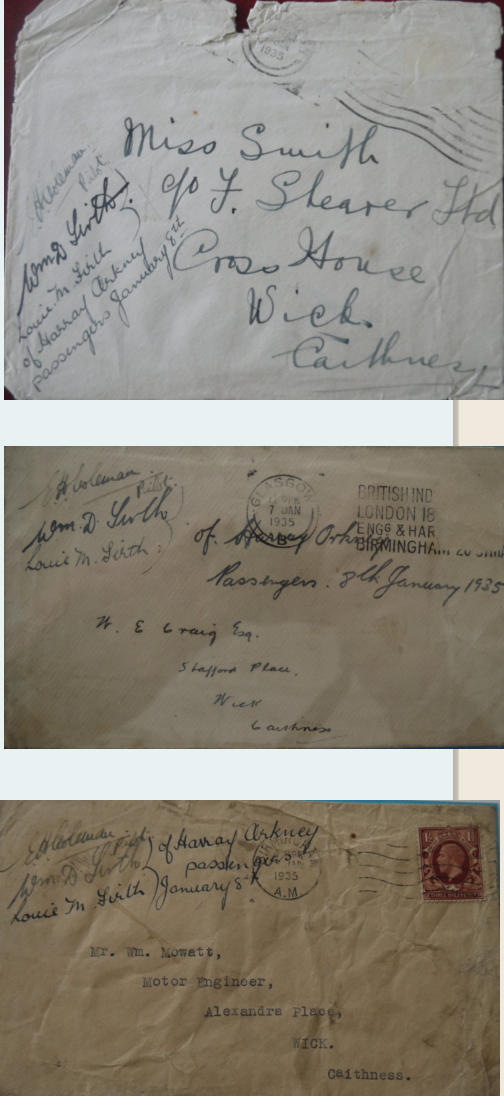 1935
Miss Smith
c/o F. Shearer Ltd
Cross House
Wick
Caithness
EHColeman
Pilot.
Wm D Firth
Louie M Firth
of Harray Orkney
passengers January 8th
EHColeman
Pilot.
Wm. D. Firth
Louie M. Firth
of Harray Orkney
Passengers. 8th January 1935
GLASGOW
7 JAN
1935
BRITISH IND
LONDON 18
ENGG & HAR
BIRMINGHAM
W. E Craig Esq.
Stafford Place.
Wick
Caithness
EHColeman
Pilot.
Wm D Firth
Louie M. Firth
of Harray Orkney
passengers
January 8th
1935
A.M
Mr. Wm. Mowatt,
Motor Engineer,
Alexandra Place,
WICK.
Caithness.